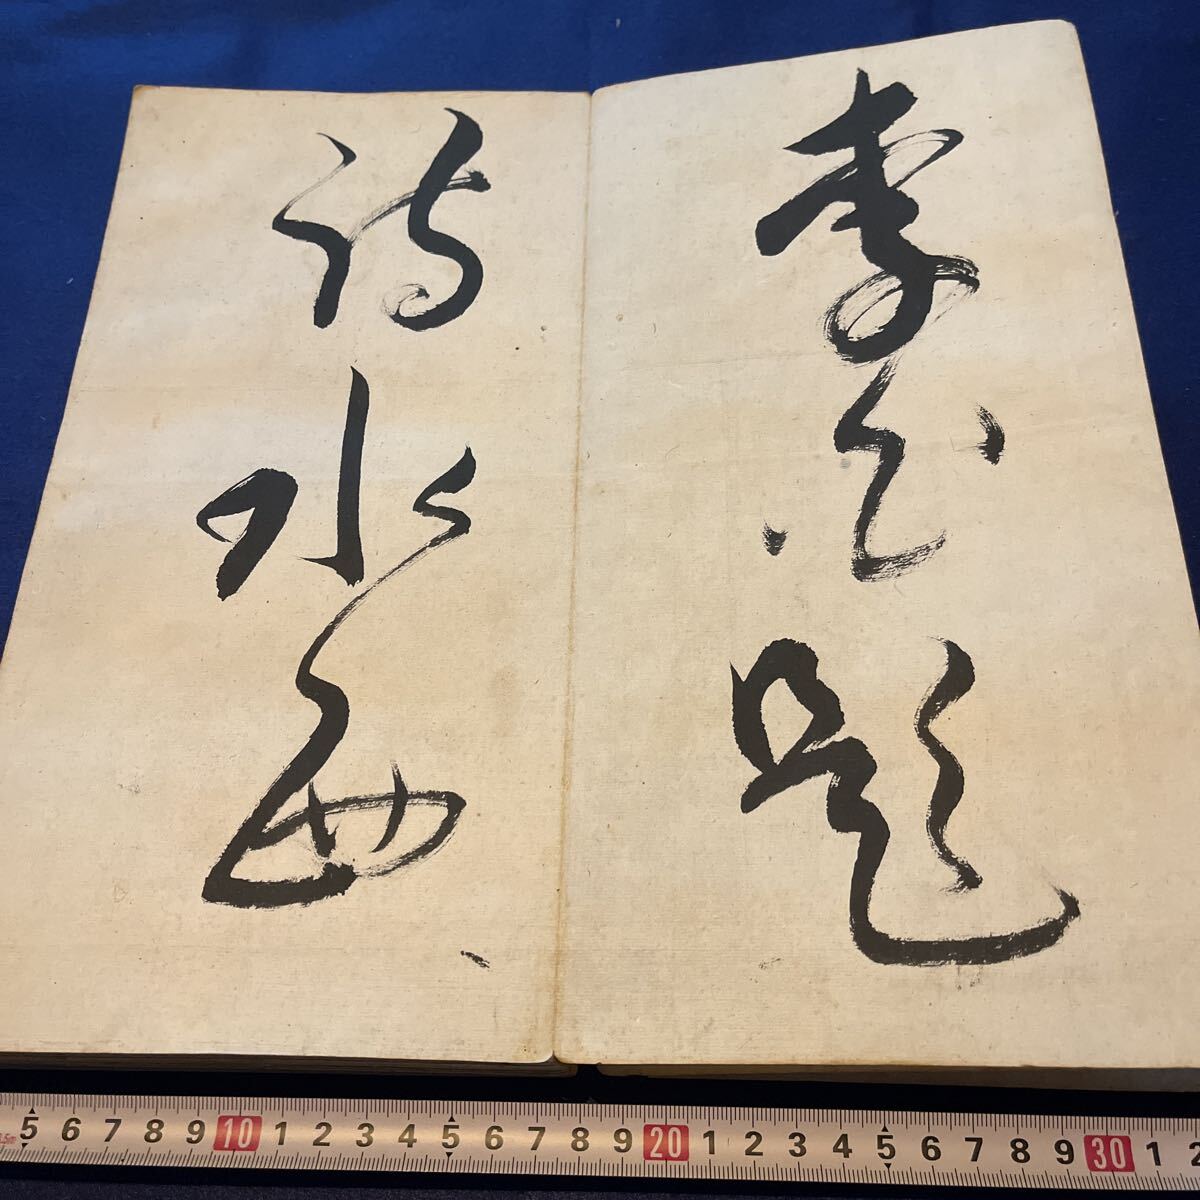 李白題
詩水西
5 6 7 8 9 10 1 2 3 4 5 6 7 8 9 20 1 2 3 4 5 6 7 8 9 30 1 2